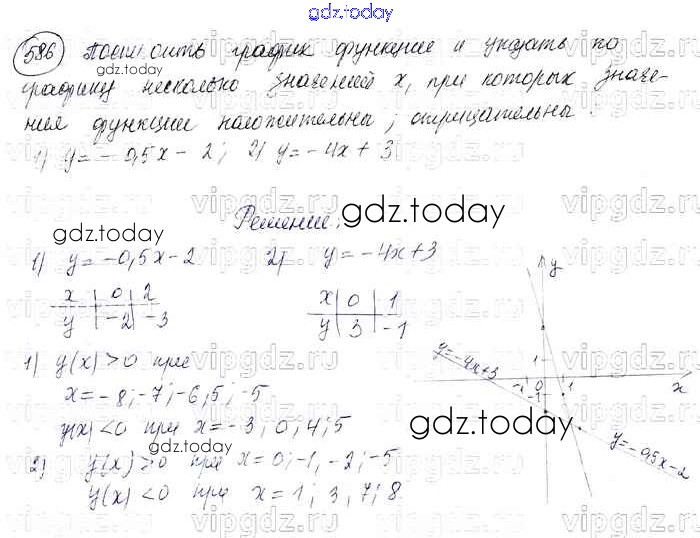 gdz.today
586 Построить график функции и указать по
графику несколько значений x, при которых значе-
ния функции положительны; отрицательны.
1) y = -0,5x - 2; 2) y = -4x + 3
Решение:
1) y = -0,5x - 2 2) y = -4x + 3
x 0 2
y -2 -3
x 0 1
y 3 -1
1) y(x) > 0 при
x = -8; -7; -6,5; -5
y(x) < 0 при x = -3; 0; 4; 5
2) y(x) > 0 при x = 0; -1; -2; -5
y(x) < 0 при x = 1; 3; 7; 8
y
1
-1 0 1
-1
x
y=-4x+3
y=-0,5x-2
gdz.today
gdz.today
gdz.today
gdz.today
gdz.today
vipgdz.ru